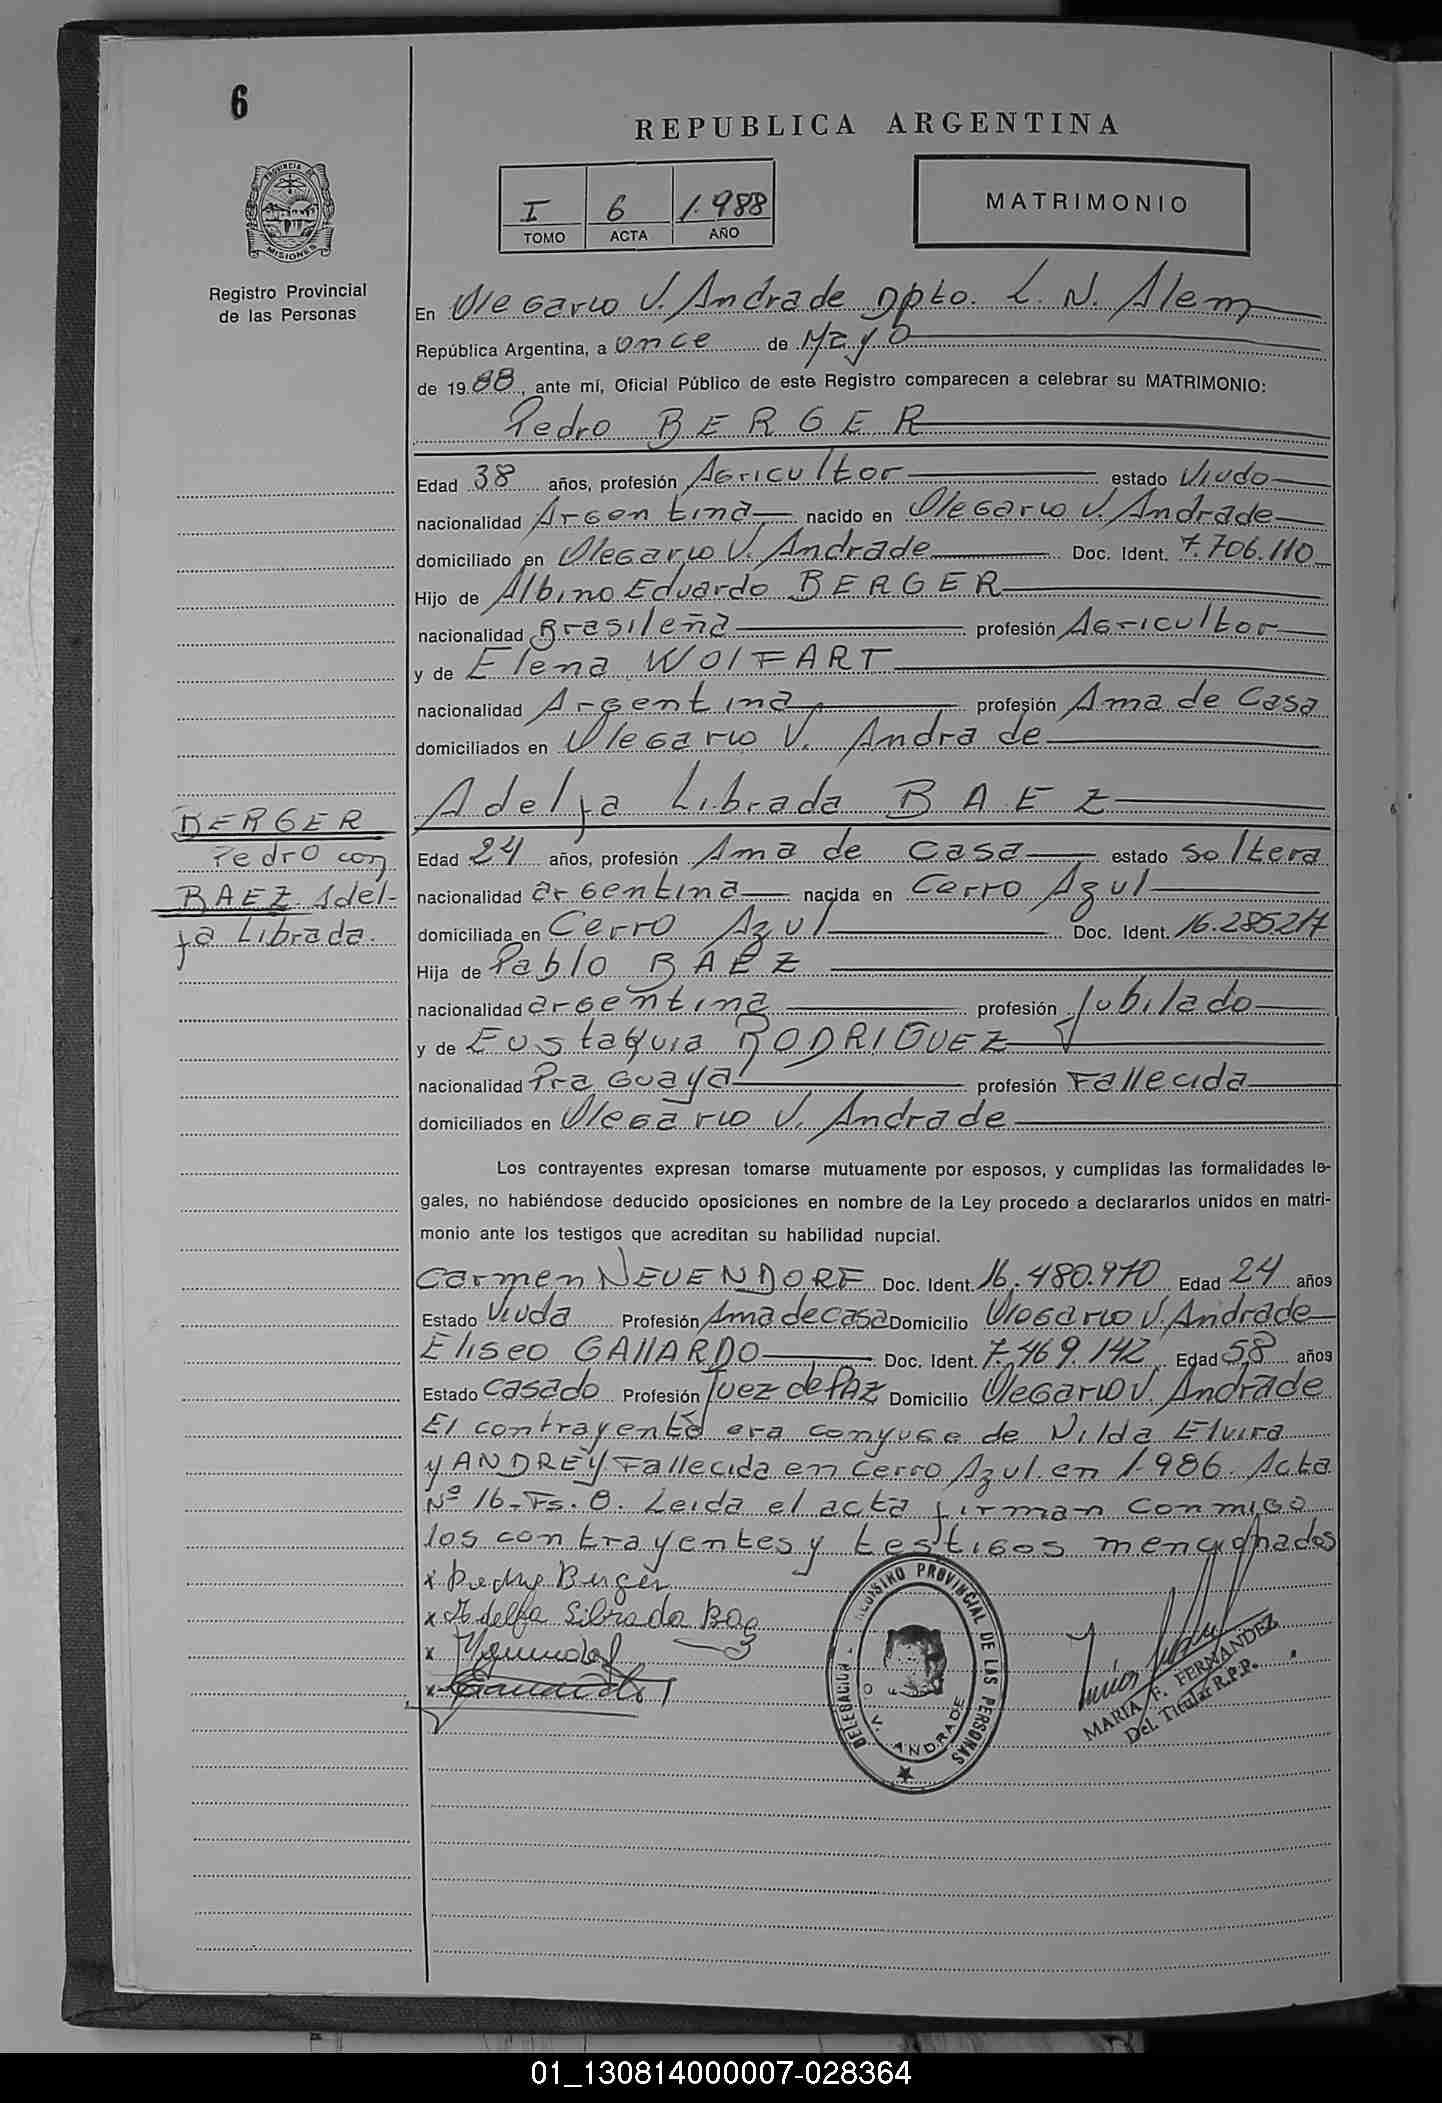 6
REPUBLICA ARGENTINA
I 6 1.988
TOMO ACTA AÑO
MATRIMONIO
PROVINCIA DE MISIONES
Registro Provincial
de las Personas
En Olegario V. Andrade Dpto. L. N. Alem
República Argentina, a once de Mayo
de 1988, ante mí, Oficial Público de este Registro comparecen a celebrar su MATRIMONIO:
Pedro BERGER
Edad 38 años, profesión Agricultor estado Viudo
nacionalidad Argentina nacido en Olegario V. Andrade
domiciliado en Olegario V. Andrade Doc. Ident. 7.706.110
Hijo de Albino Eduardo BERGER
nacionalidad Brasileña profesión Agricultor
y de Elena WOLFART
nacionalidad Argentina profesión Ama de Casa
domiciliados en Olegario V. Andrade
Adelfa Librada BAEZ
BERGER
Pedro con
BAEZ Adel-
fa Librada.
Edad 24 años, profesión Ama de casa estado soltera
nacionalidad argentina nacida en Cerro Azul
domiciliada en Cerro Azul Doc. Ident. 16.285217
Hija de Pablo BAEZ
nacionalidad argentina profesión Jubilado
y de Eustaquia RODRIGUEZ
nacionalidad Praguaya profesión Fallecida
domiciliados en Olegario V. Andrade
Los contrayentes expresan tomarse mutuamente por esposos, y cumplidas las formalidades le-
gales, no habiéndose deducido oposiciones en nombre de la Ley procedo a declararlos unidos en matri-
monio ante los testigos que acreditan su habilidad nupcial.
Carmen NEUENDORF Doc. Ident. 16.480.970 Edad 24 años
Estado Viuda Profesión Ama de casa Domicilio Olegario V. Andrade
Eliseo GALLARDO Doc. Ident. 7.469.142 Edad 58 años
Estado casado Profesión Juez de PAZ Domicilio Olegario V. Andrade
El contrayente era conyuge de Nilda Elvira
y ANDREY Fallecida en Cerro Azul en 1.986. Acta
Nº 16-Fs. 8. Leida el acta firman conmigo
los contrayentes y testigos mencionados
x Pedro Berger
x Adelfa Librada Baez
x
x
DELEGACION - REGISTRO PROVINCIAL DE LAS PERSONAS
O. V. ANDRADE
MARIA F. FERNANDEZ
Del. Titular R.P.P.
01_130814000007-028364